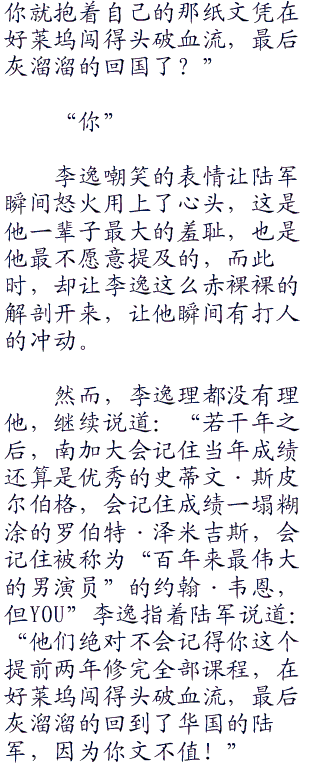 你就抱着自己的那纸文凭在
好莱坞闯得头破血流，最后
灰溜溜的回国了？”
“你”
李逸嘲笑的表情让陆军
瞬间怒火用上了心头，这是
他一辈子最大的羞耻，也是
他最不愿意提及的，而此
时，却让李逸这么赤裸裸的
解剖开来，让他瞬间有打人
的冲动。
然而，李逸理都没有理
他，继续说道：“若干年之
后，南加大会记住当年成绩
还算是优秀的史蒂文·斯皮
尔伯格，会记住成绩一塌糊
涂的罗伯特·泽米吉斯，会
记住被称为“百年来最伟大
的男演员”的约翰·韦恩，
但YOU”李逸指着陆军说道：
“他们绝对不会记得你这个
提前两年修完全部课程，在
好莱坞闯得头破血流，最后
灰溜溜的回到了华国的陆
军，因为你文不值！”